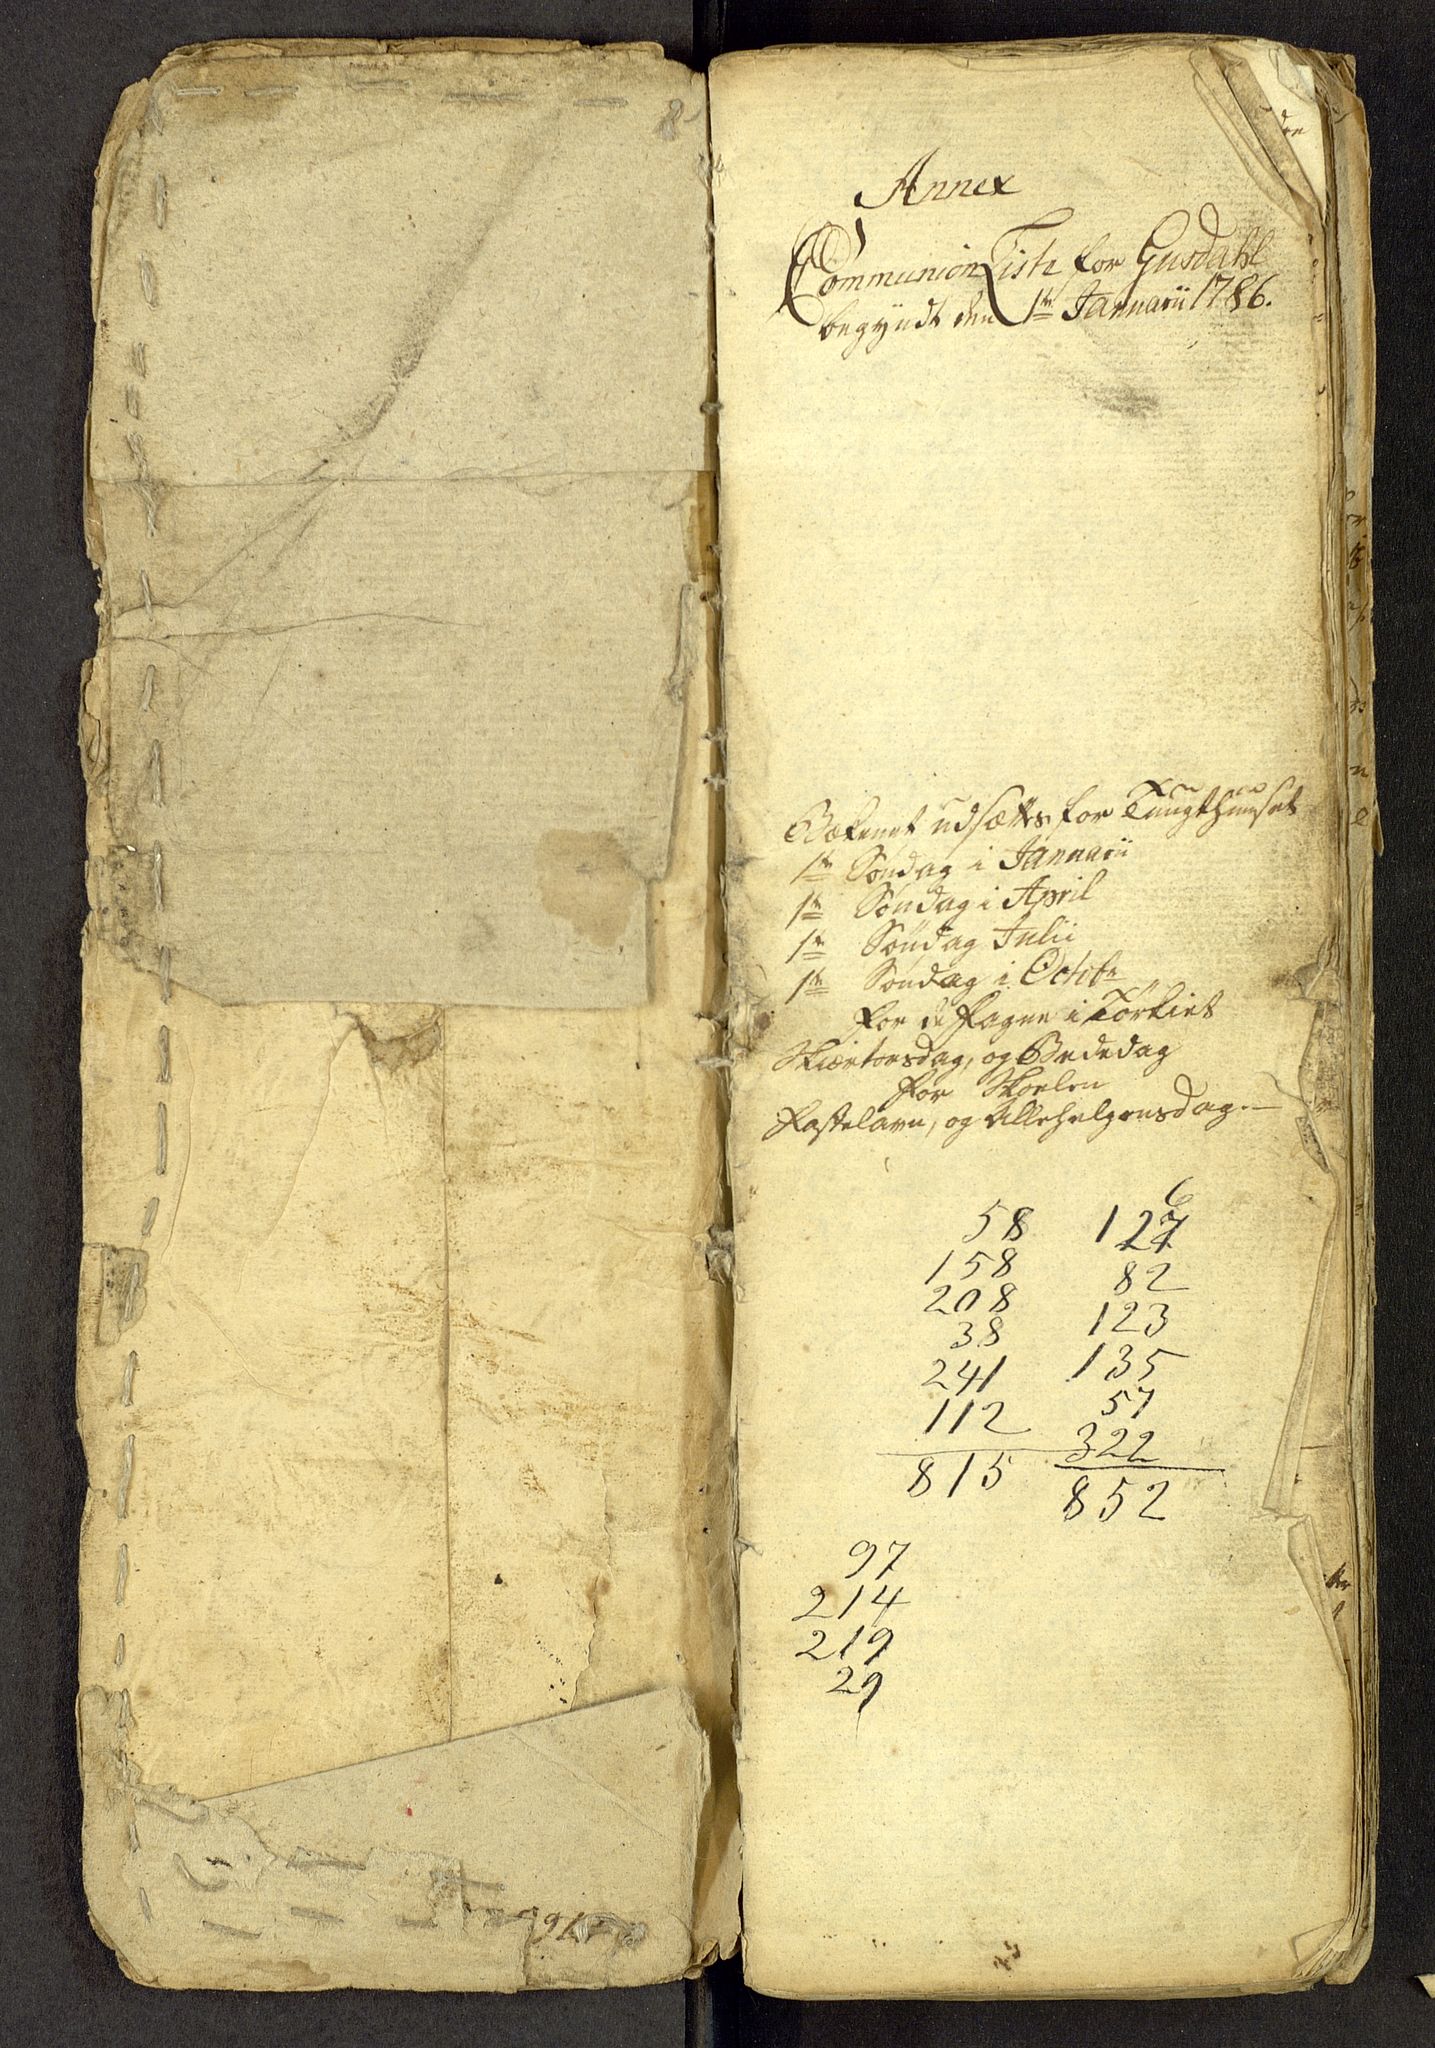 Annex
Communion Liste for Gusdahl
begyndt den 1te Januarii 1786.
Bekenet udsættes for Tugthuuset
1te Søndag i Januarii
1te Søndag i April
1te Søndag Julii
1te Søndag i Octobr
for de fagne i Törkiet
Skiærtorsdag, og Bededag
for Skoelen
Fastelavn, og Allehelgensdag.
58
158
208
38
241
112
815
6
127
82
123
135
57
322
852
97
214
219
29